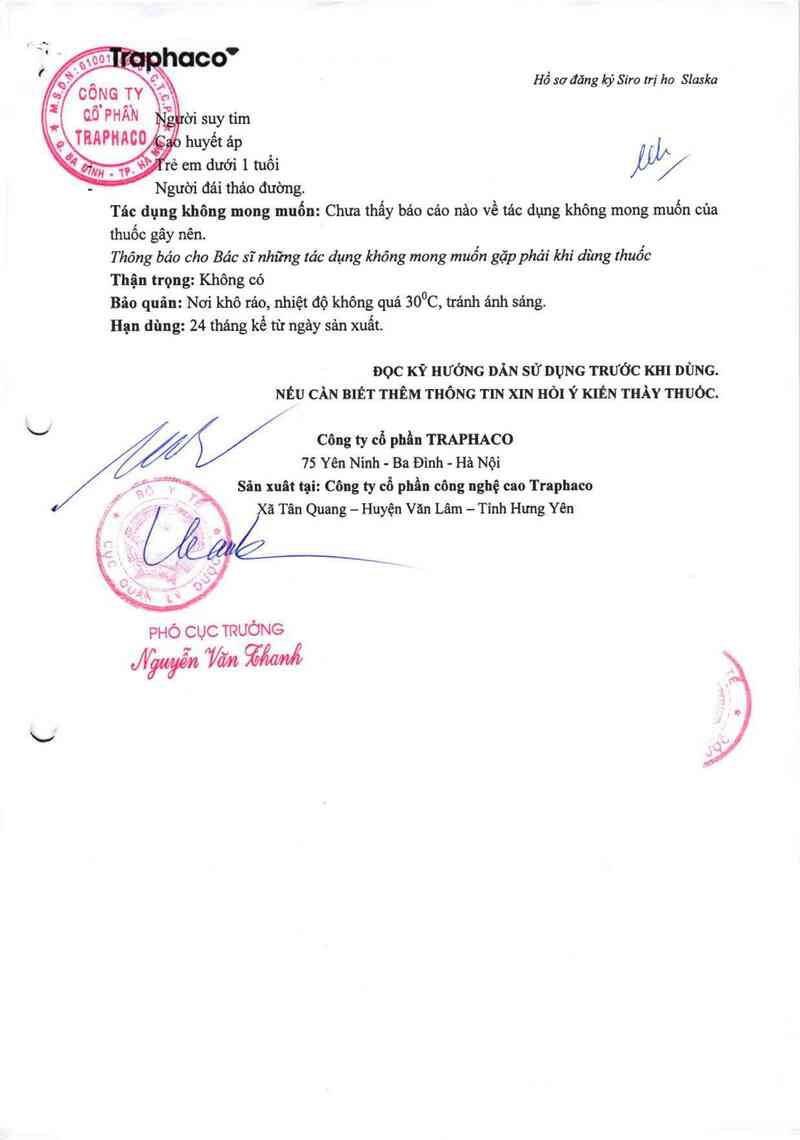 Traphaco
Hồ sơ đăng ký Siro trị ho Slaska
CÔNG TY
CỔ PHẦN
TRAPHACO
Người suy tim
Cao huyết áp
Trẻ em dưới 1 tuổi
- Người đái tháo đường.
Tác dụng không mong muốn: Chưa thấy báo cáo nào về tác dụng không mong muốn của
thuốc gây nên.
Thông báo cho Bác sĩ những tác dụng không mong muốn gặp phải khi dùng thuốc
Thận trọng: Không có
Bảo quản: Nơi khô ráo, nhiệt độ không quá 30⁰C, tránh ánh sáng.
Hạn dùng: 24 tháng kể từ ngày sản xuất.
ĐỌC KỸ HƯỚNG DẪN SỬ DỤNG TRƯỚC KHI DÙNG.
NẾU CẦN BIẾT THÊM THÔNG TIN XIN HỎI Ý KIẾN THẦY THUỐC.
Công ty cổ phần TRAPHACO
75 Yên Ninh - Ba Đình - Hà Nội
Sản xuất tại: Công ty cổ phần công nghệ cao Traphaco
Xã Tân Quang – Huyện Văn Lâm – Tỉnh Hưng Yên
BỘ Y TẾ
CỤC QUẢN LÝ DƯỢC
PHÓ CỤC TRƯỞNG
Nguyễn Văn Thanh